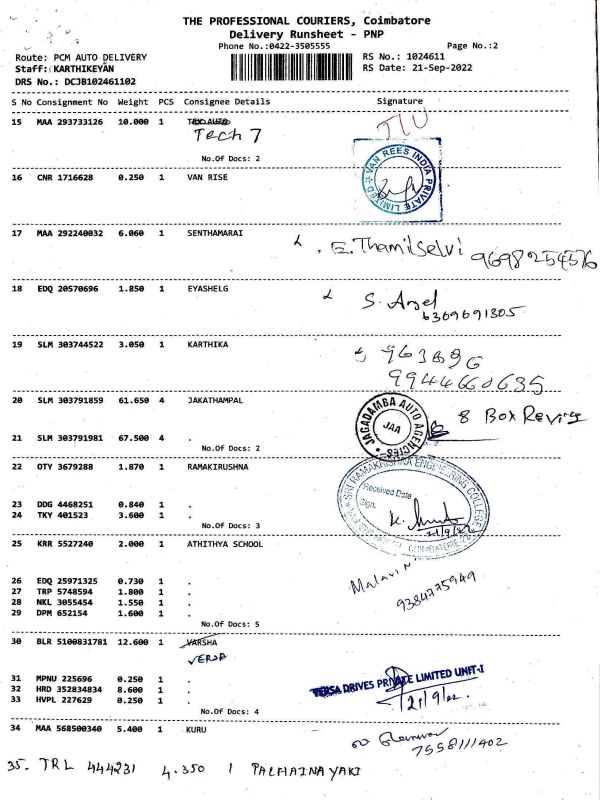 THE PROFESSIONAL COURIERS, Coimbatore
Delivery Runsheet - PNP
Phone No.:0422-3505555 Page No.:2
Route: PCM AUTO DELIVERY RS No.: 1024611
Staff: KARTHIKEYAN RS Date: 21-Sep-2022
DRS No.: DCJB102461102
S No Consignment No Weight PCS Consignee Details Signature
15 MAA 293733126 10.000 1
Tech 7
No.Of Docs: 2
VAN REES INDIA PRIVATE LIMITED
16 CNR 1716628 0.250 1 VAN RISE
17 MAA 292240032 6.060 1 SENTHAMARAI
E. Thamilselvi 9698254576
18 EDQ 20570696 1.850 1 EYASHELG
S. Angel
6369691805
19 SLM 303744522 3.050 1 KARTHIKA
9944660635
20 SLM 303791859 61.650 4 JAKATHAMPAL
JAGADAMBA AUTO AGENCIES
JAA
8 Box
21 SLM 303791981 67.500 4 .
No.Of Docs: 2
22 OTY 3679288 1.870 1 RAMAKIRUSHNA
SRI RAMAKRISHNA ENGINEERING COLLEGE
Received Date
Sign.
21/9/22
COIMBATORE-22
23 DDG 4468251 0.840 1 .
24 TKY 401523 3.600 1 .
No.Of Docs: 3
25 KRR 5527240 2.000 1 ATHITHYA SCHOOL
Malavi N
9384775949
26 EDQ 25971325 0.730 1 .
27 TRP 5748594 1.800 1 .
28 NKL 3055454 1.550 1 .
29 DPM 652154 1.600 1 .
No.Of Docs: 5
30 BLR 5100831781 12.600 1 VARSHA
VERSA
31 MPNU 225696 0.250 1 .
VERSA DRIVES PRIVATE LIMITED UNIT-I
32 HRD 352834834 8.600 1 .
21/9/22.
33 HVPL 227629 0.250 1 .
No.Of Docs: 4
34 MAA 568500340 5.400 1 KURU
7558111402
35. TRL 444231 4.350 1 PALHAINAYAKI